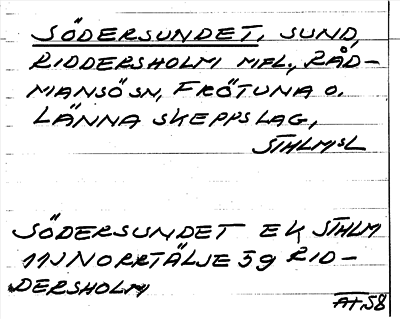 SÖDERSUNDET, SUND,
RIDDERSHOLM MFL., RÅD-
MANSÖ SN, FRÖTUNA O.
LÄNNA SKEPPSLAG,
STHLMSL
SÖDERSUNDET EK STHLM
11J NORRTÄLJE 59 RID-
DERSHOLM
AH 58